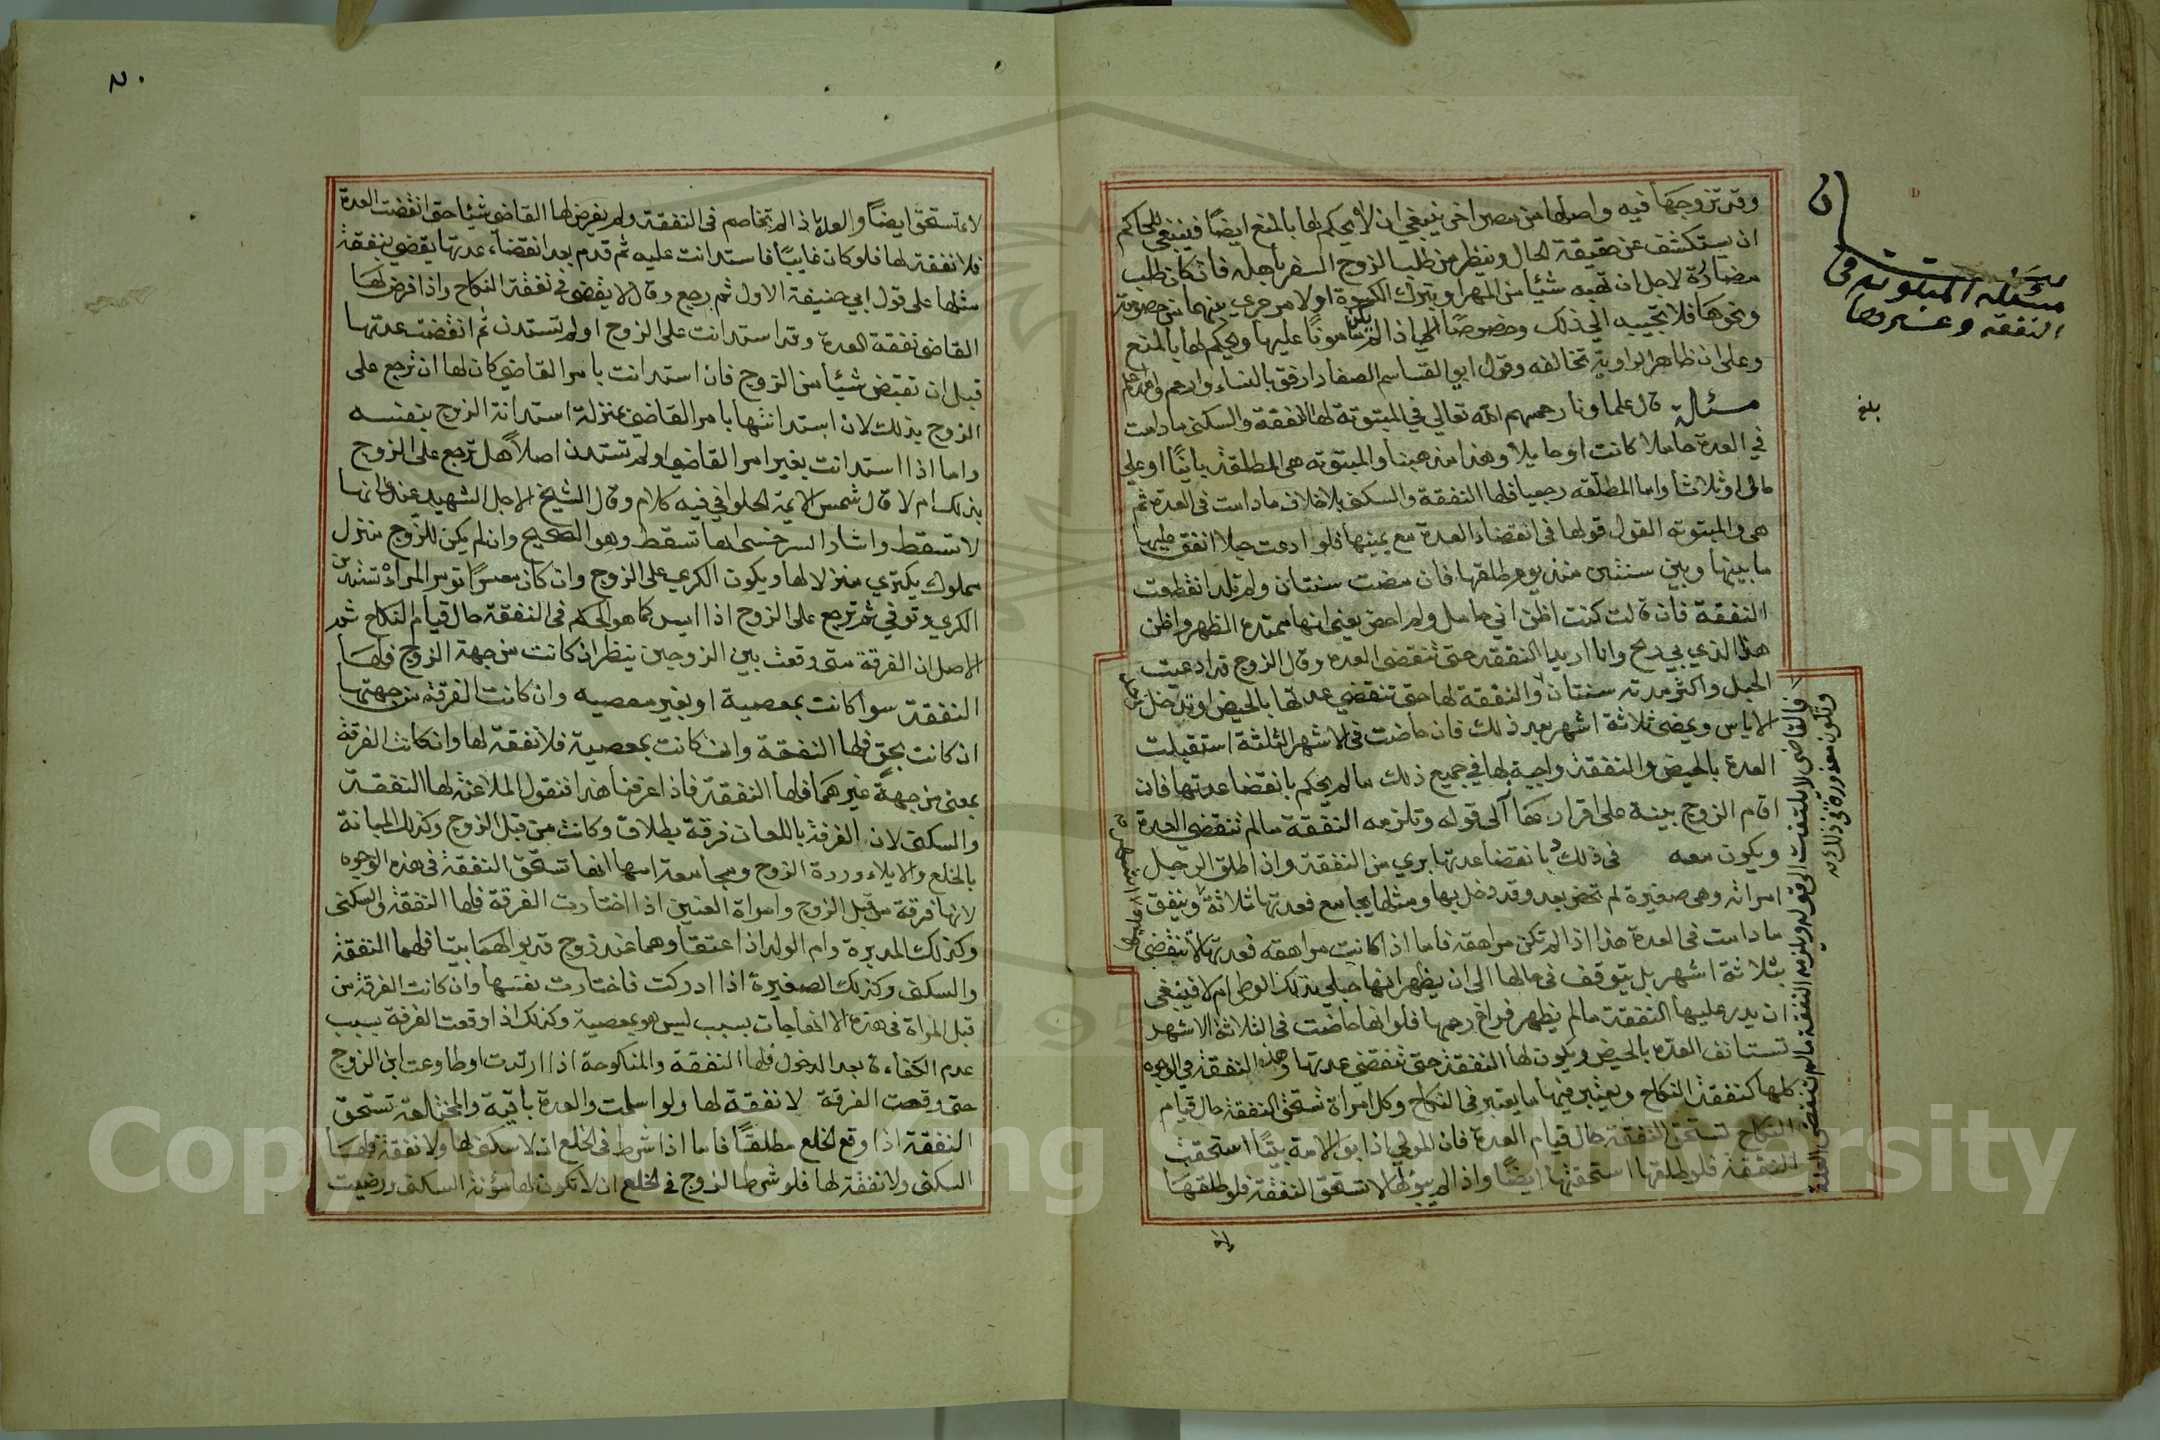 وقد تزوجها فيه واصلها من مصر اخر ينبغي ان لا يحكم لها بالمنع ايضًا فينبغي للحاكم
ان يستكشف عن حقيقة الحال وينظر من طلب الزوج السفر باهله فان كان طلب
مضارة لاجل ان تهبه شيئا من المهر او بترك الكسوة او لامر جري بينهما من خصومة
ونحوها فلا يجيبه الي ذلك وخصوصًا اذا لم يكن مامونًا عليها ويحكم لها بالمنع
وعلى ان ظاهر الرواية تخالفه وقول ابي القاسم الصفار ارفق بالنساء وارحم
مسئلة قال علماونا رحمهم الله تعالي في المبتوتة لها النفقة والسكنى ما دامت
في العدة حاملا كانت او حايلا وهذا مذهبنا والمبتوته هى المطلقة باينًا او على
مال او ثلاثا واما المطلقه رجعيا فلها النفقة والسكنى بلا خلاف ما دامت فى العدة ثم
هى والمبتوته القول قولها فى انقضاء العدة مع يمينها فلو ادعت حبلا انفق عليها
ما بينها وبين سنتين منذ يوم طلقها فان مضت سنتان ولم تلد انقطعت
النفقة فان قالت كنت اظن اني حامل ولم احض يعنى انها ممتدة الطهر واظن
هذا الذي بي ريح وانا اريد النفقه حتى تنقضى العدة وقال الزوج قد ادعيت
الحبل واكثر مدته سنتان والنفقة لها حتى تنقضي عدتها بالحيض او تدخل
الاياس ويمضى ثلاثة اشهر بعد ذلك فان حاضت فى الاشهر الثلثة استقبلت
العدة بالحيض والنفقة واجبة لها في جميع ذلك ما لم يحكم بانقضا عدتها فان
اقام الزوج بينة على اقرارها الى قوله وتلزمه النفقة مالم تنقضي العدة
ويكون معه فى ذلك بانقضا عدتها بري من النفقة واذا طلق الرجل
امراته وهى صغيرة لم تحض بعد وقد دخل بها ومثلها يجامع فعدتها ثلاثة وينفق
ما دامت فى العدة هذا اذا لم تكن مراهقه فاما اذا كانت مراهقه فعدتها لا تنقضى
بثلاثة اشهر بل يتوقف فى حالها الى ان يظهر انها حبلي بذلك الوطي ام لا فينبغى
ان يدر عليها النفقة مالم يظهر فراغ رحمها فلو انها حاضت فى الثلاثة الاشهر
تستانف العدة بالحيض ويكون لها النفقة حتى تنقضي عدتها وهذه النفقة في الوجوه
كلها كنفقة النكاح ويعتبر فيها ما يعتبر فى النكاح وكل امراة تستحق النفقة حال قيام
النكاح تستحق النفقة حال قيام العدة فان المولي اذا بوا الامة بيتًا استحقت
النفقة فلو طلقها استحقتها ايضًا واذا لم يبوئها لا تستحق النفقة فلو طلقها
فالقاضى لا يلتفت الى قوله ويلزمه النفقة مالم تنقضى العدة
وتكون معذورة فى ذلك
مسئلة المبتوتة فى
النفقة وغيرها
بلغ
لا
لا تستحق ايضًا والعدة اذا لم تخاصم فى النفقة ولم يفرض لها القاضي شيئا حتى انقضت العدة
فلا نفقة لها فلو كان غايبًا فاستدانت عليه ثم قدم بعد انقضاء عدتها يقضي بنفقة
مثلها على قول ابي حنيفة الاول ثم رجع وقال لا يقضى في نفقة النكاح واذا فرض لها
القاضى نفقة العدة وقد استدانت على الزوج او لم تستدن ثم انقضت عدتها
قبل ان تقبض شيئا من الزوج فان استدانت بامر القاضي كان لها ان ترجع على
الزوج بذلك لان استدانتها بامر القاضى بمنزلة استدانة الزوج بنفسه
واما اذا استدانت بغير امر القاضي او لم تستدن اصلًا هل ترجع على الزوج
بذلك ام لا قال شمس الايمة الحلواني فيه كلام وقال الشيخ الاجل الشهيد عندي انها
لا تسقط واشار السرخسى انها تسقط وهو الصحيح وان لم يكن للزوج منزل
مملوك يكتري منزلا لها ويكون الكري على الزوج وان كان معسرًا تومر المراة تستدين
الكري وتوفي ثم ترجع على الزوج اذا ايسر كما هو الحكم فى النفقة حال قيام النكاح ثم
الاصل ان الفرقة متى وقعت بين الزوجين ينظر ان كانت من جهة الزوج فلها
النفقة سوا كانت بمعصية او بغير معصيه وان كانت الفرقة من جهتها
ان كانت بحق فلها النفقة وان كانت بمعصية فلا نفقة لها وان كانت الفرقة
بمعنى من جهة غيرهما فلها النفقة فاذا عرفنا هذا فنقول الملاعنة لها النفقة
والسكنى لان الفرقة باللعان فرقة بطلاق وكانت من قبل الزوج وكذلك المبانة
بالخلع والايلاء وردة الزوج ومجامعة امها انها تستحق النفقة فى هذه الوجوه
لانها فرقة من قبل الزوج وامراة العنين اذا اختارت الفرقة فلها النفقة والسكنى
وكذلك المدبرة وام الولد اذا اعتقا وهما عند زوج قد بوالهما بيتا فلهما النفقة
والسكنى وكذلك الصغيرة اذا ادركت فاختارت نفسها وان كانت الفرقة من
قبل المراة فى هذه الا انها جات بسبب ليس هو بمعصية وكذلك اذا وقعت الفرقة بسبب
عدم الكفاءة بعد الدخول فلها النفقة والمنكوحة اذا ارتدت او طاوعت ابن الزوج
حتى وقعت الفرقة لا نفقة لها ولو اسلمت والعدة باقية والمختلعة تستحق
النفقة اذا وقع الخلع مطلقًا فاما اذا شرط فى الخلع ان لا سكنى لها ولا نفقة فلها
السكنى ولا نفقة لها فلو شرط الزوج فى الخلع ان لا تكون لها مؤنة السكنى ورضيت
Copyright © King Saud University